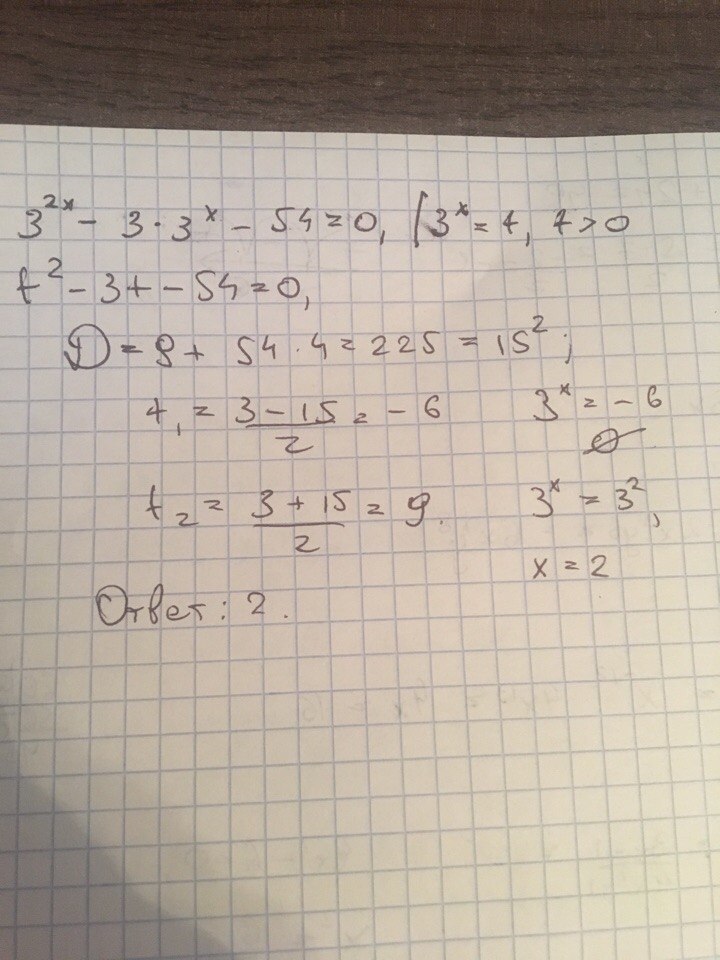 3^{2x} - 3 · 3^x - 54 = 0, | 3^x = t, t > 0
t^2 - 3t - 54 = 0,
D = 9 + 54 · 4 = 225 = 15^2;
t_1 = \frac{3 - 15}{2} = - 6 3^x = - 6
∅
t_2 = \frac{3 + 15}{2} = 9. 3^x = 3^2,
x = 2
Ответ: 2.